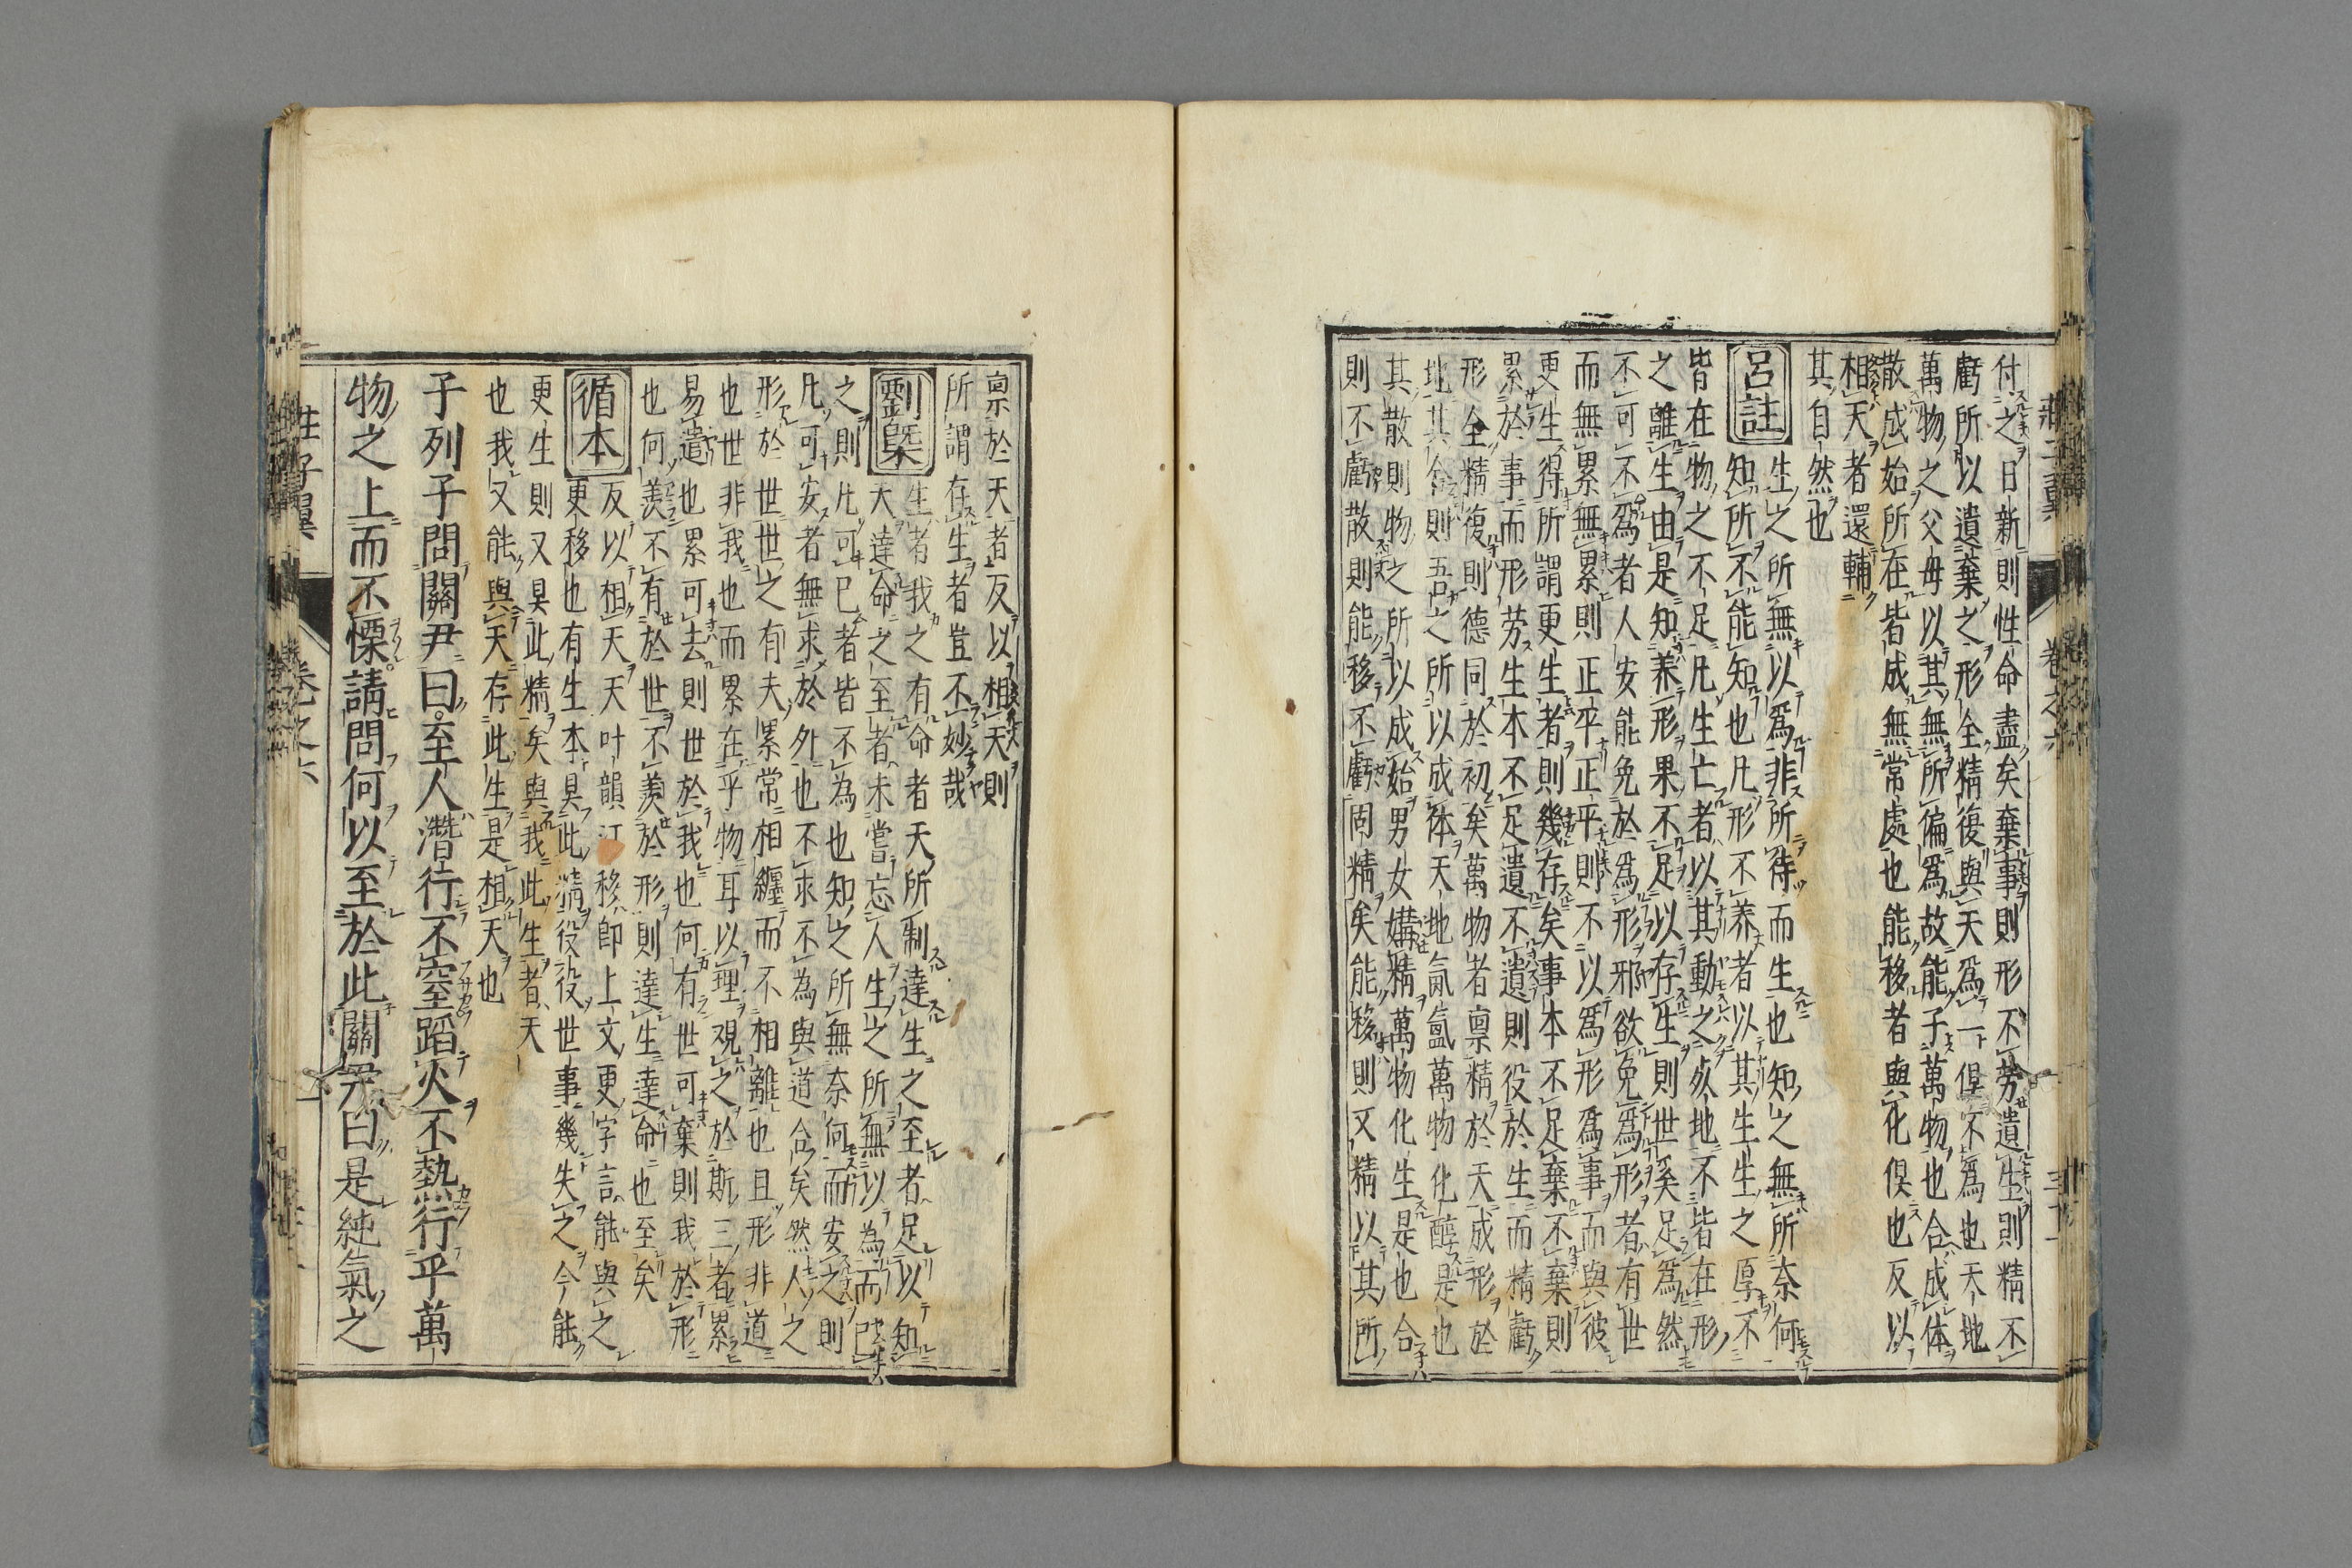 付之日新則性命盡矣棄事則形不勞遺生則精不
虧所以遺棄之形全精復與天為一俱不為也天地
萬物之父母以其無所偏為故能子萬物也合成体
散成始所在皆成無常處也能移者與化俱也反以
相天者還輔
其自然也
呂註
生之所無以為非所待而生也知之無所奈何
知所不能知也凡形不養者以其生生之厚不
皆在物之不足凡生亡者以其動之死地不皆在形
之離生由是知養形果不足以存生則世奚足為然
不可不為者人安能免於為形邪欲免為形者有世
而無累無累則正平正平則不以為形為事而與彼
更生得所謂更生者則幾存矣事本不足棄不棄則
累於事而形労生本不足遺不遺則役於生而精虧
形全精復則德同於初矣萬物者禀精於天成形於
地其合則吾之所以成体天地氤氳萬物化醇是也
其散則物之所以成始男女媾精萬物化生是也合
則不虧散則能移不虧固精矣能移則又精以其所
莊子翼 卷之六
禀於天者反以相天則
所謂存生者豈不妙哉
劉槩
生者我之有命者天所制達生之至者足以知
天達命之至者未嘗忘人生之所無以為而已
之則凡可已者皆不為也知之所無奈何而安之則
凡可安者無求於外也不求不為與道合矣然人之
形於世世之有夫累常相纏而不相離也且形非道
也世非我也而累在乎物耳以理觀之於斯三者累
易遣也累可去則世於我也何有世可棄則我於形
也何羨不有於世不羨於形則達生達命也至矣
循本
反以相天天叶韻汀移即上文更字言能與之
更移也有生本具此精役役世事幾失之今能
更生則又具此精矣與我此生者天
也我又能與天存此生是相天也
子列子問關尹曰至人潛行不窒蹈火不熱行乎萬
物之上而不慄請問何以至於此關尹曰是純氣之
莊子翼 卷之六